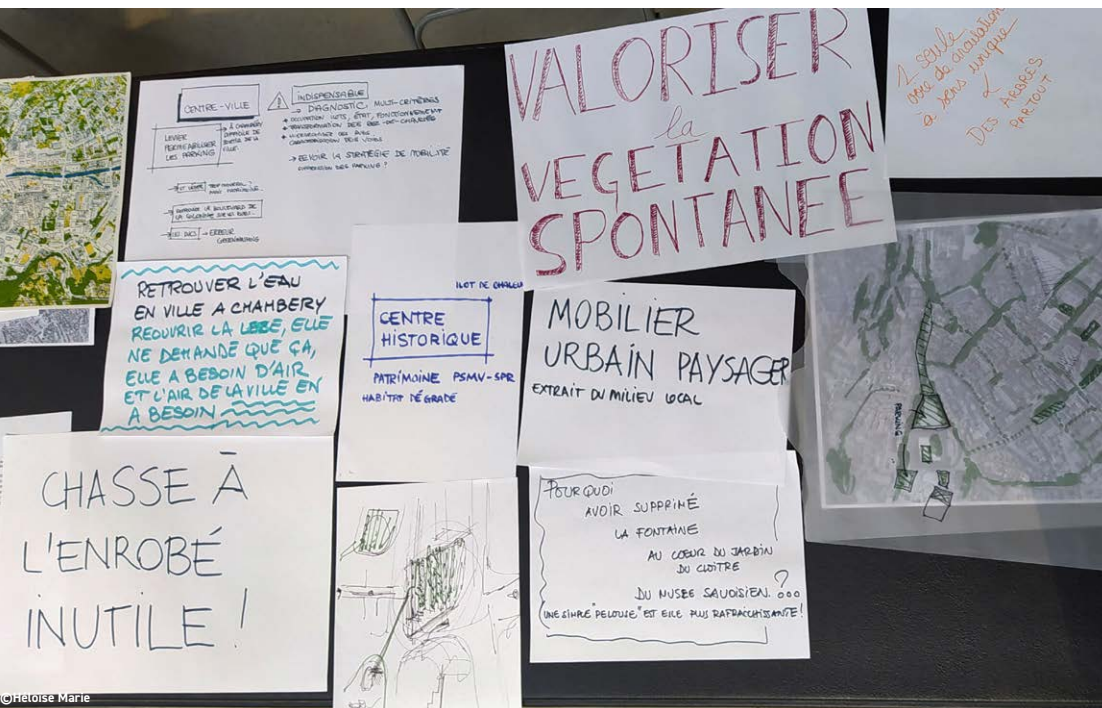 CENTRE-VILLE
LEVIER
PERMÉABILISER
LES PARKING
→ À CHAMBERY
DEMANDE DE
SORTIR DE LA
VILLE!
INDISPENSABLE
→ DIAGNOSTIC MULTI-CRITÈRES
OCCUPATION ILOTS, ÉTAT, FONCTIONNEMENT
TRANSFORMATION DES REZ-DE-CHAUSSÉE
→ REVOIR LA STRATÉGIE DE MOBILITÉ
SUPPRESSION DES PARKING?
TROP MINÉRAL?
LE BOULEVARD DE
LA COLONNE
→ ERREUR
VALORISER
la
VEGETATION
SPONTANEE
1 seule
voie de circulation
à sens unique
&
DES ARBRES
PARTOUT
RETROUVER L'EAU
EN VILLE A CHAMBERY
REOUVRIR LA LEISSE, ELLE
NE DEMANDE QUE ÇA,
ELLE A BESOIN D'AIR
ET L'AIR DE LA VILLE EN
A BESOIN
ILOT DE CHALEU
CENTRE
HISTORIQUE
PATRIMOINE PSMV-SPR
HABITAT DÉGRADÉ
MOBILIER
URBAIN PAYSAGER
EXTRAIT DU MILIEU LOCAL
PARKING
CHASSE À
L'ENROBÉ
INUTILE !
POURQUOI
AVOIR SUPPRIMÉ
LA FONTAINE
AU COEUR DU JARDIN
DU CLOITRE
DU MUSEE SAVOISIEN...?
(UNE SIMPLE "PELOUSE" EST ELLE PLUS RAFRAICHISSANTE!
©Heloïse Marie